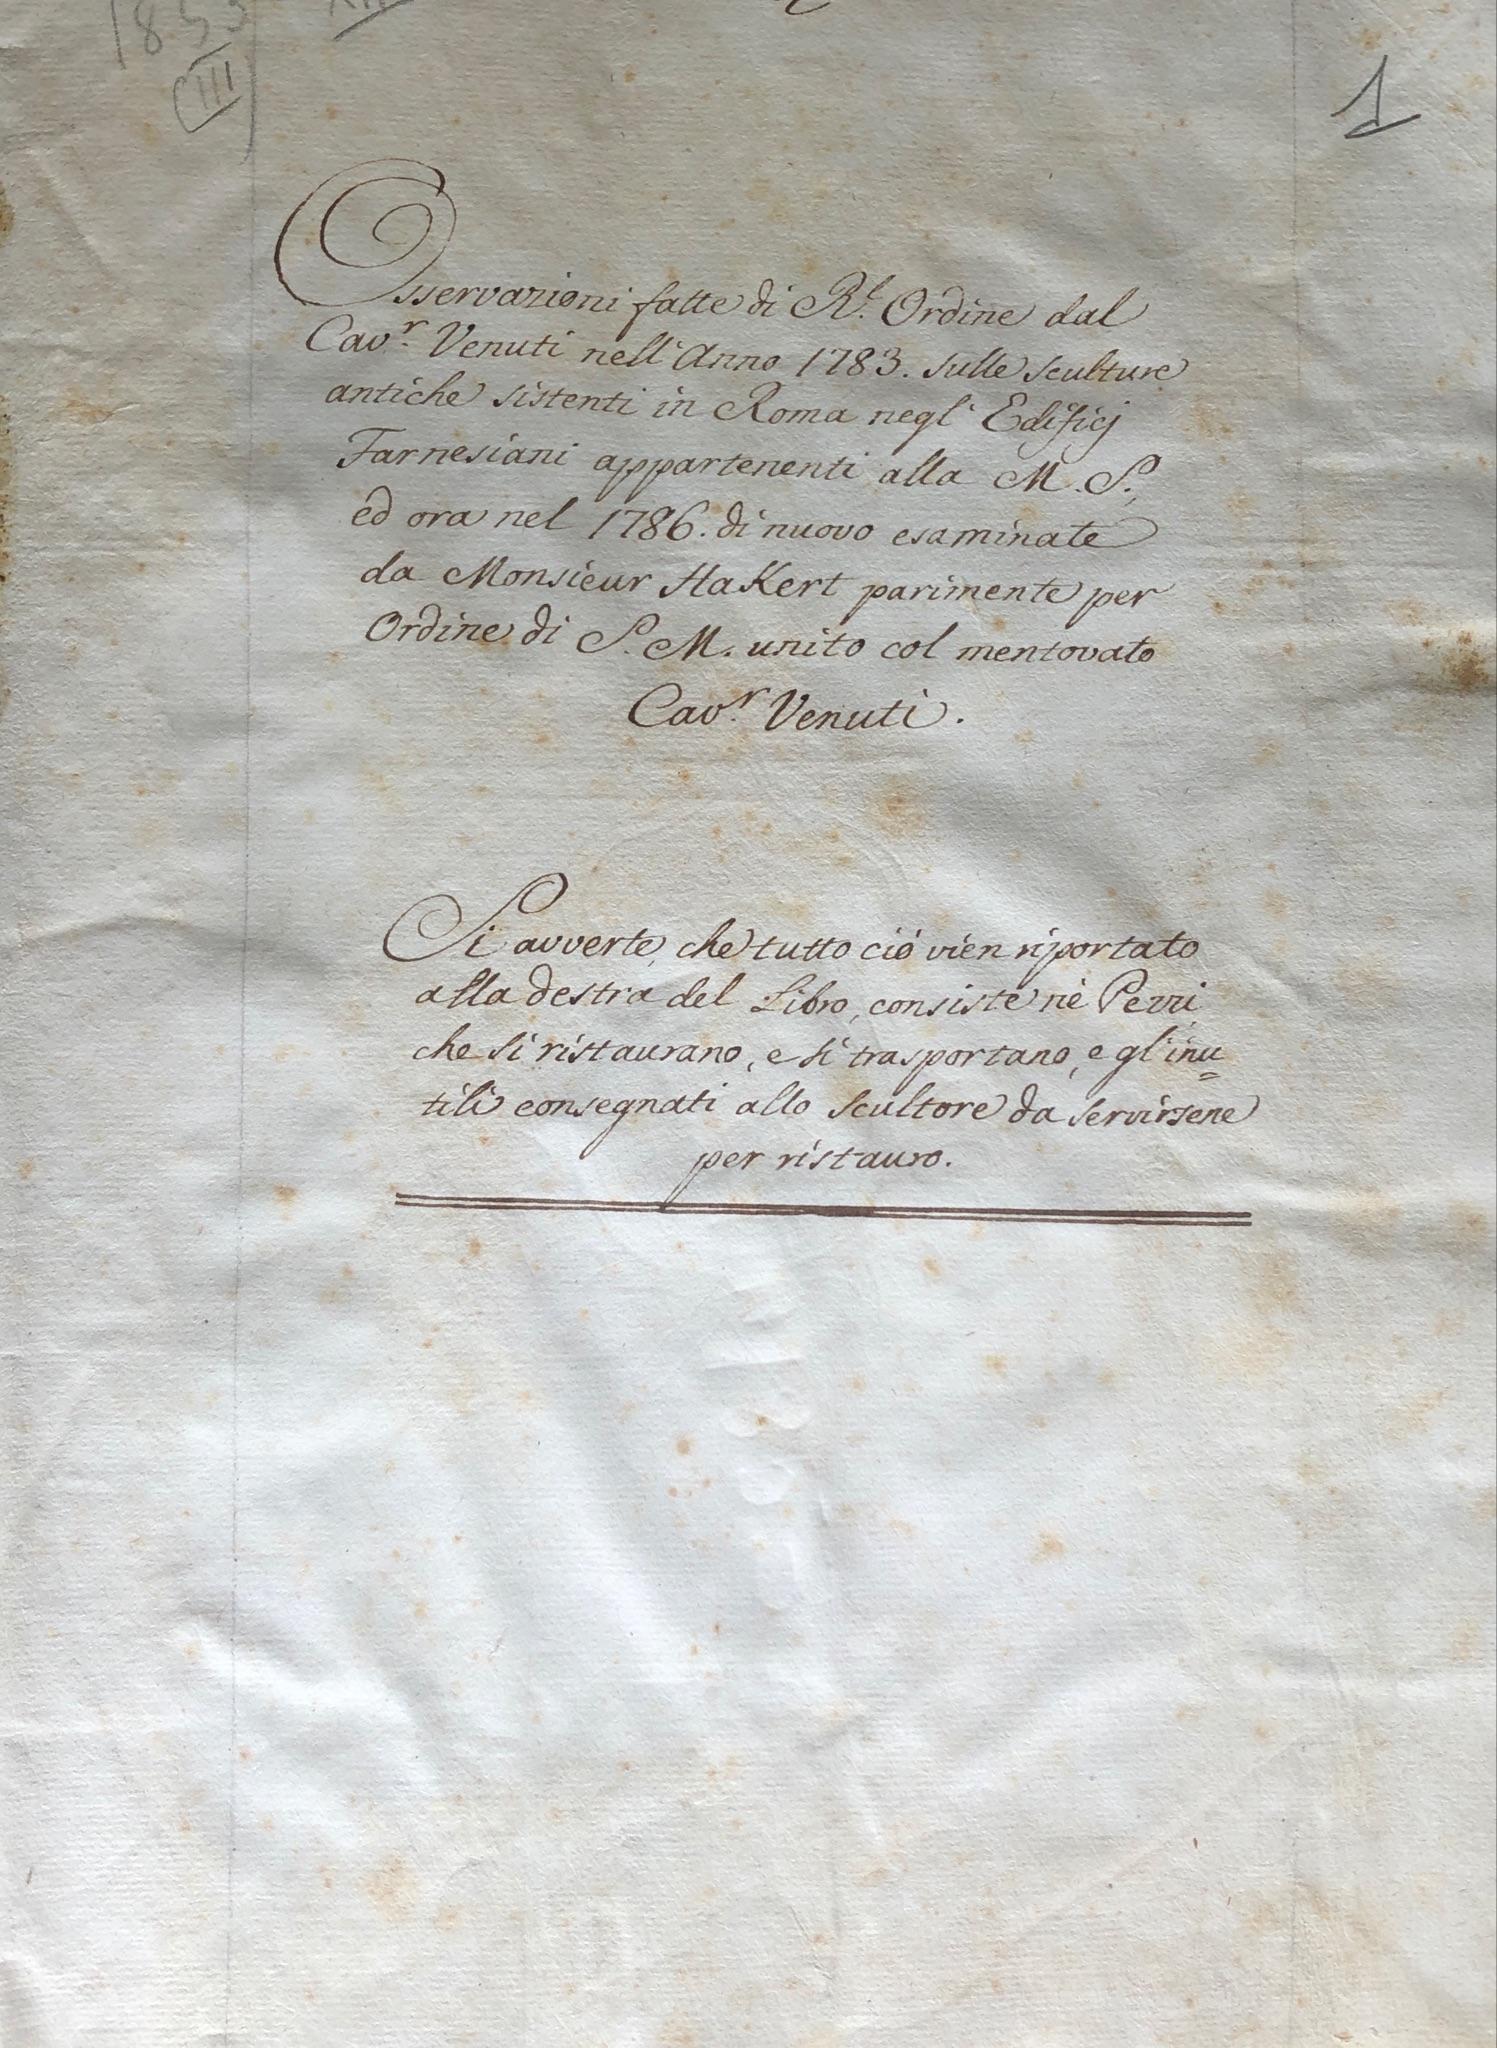 1853
(III)
1
Osservazioni fatte di R.l Ordine dal
Cav.r Venuti nell'Anno 1783. sulle sculture
antiche sistenti in Roma negl'Edificj
Farnesiani appartenenti alla M.S.,
ed ora nel 1786. di nuovo esaminate
da Monsieur HaKert parimente per
Ordine di S.M. unito col mentovato
Cav.r Venuti.
Si avverte, che tutto ciò vien riportato
alla destra del Libro, consiste nè Pezzi
che si ristaurano, e si trasportano, e gl'inu=
tili consegnati allo scultore da servirsene
per ristauro.